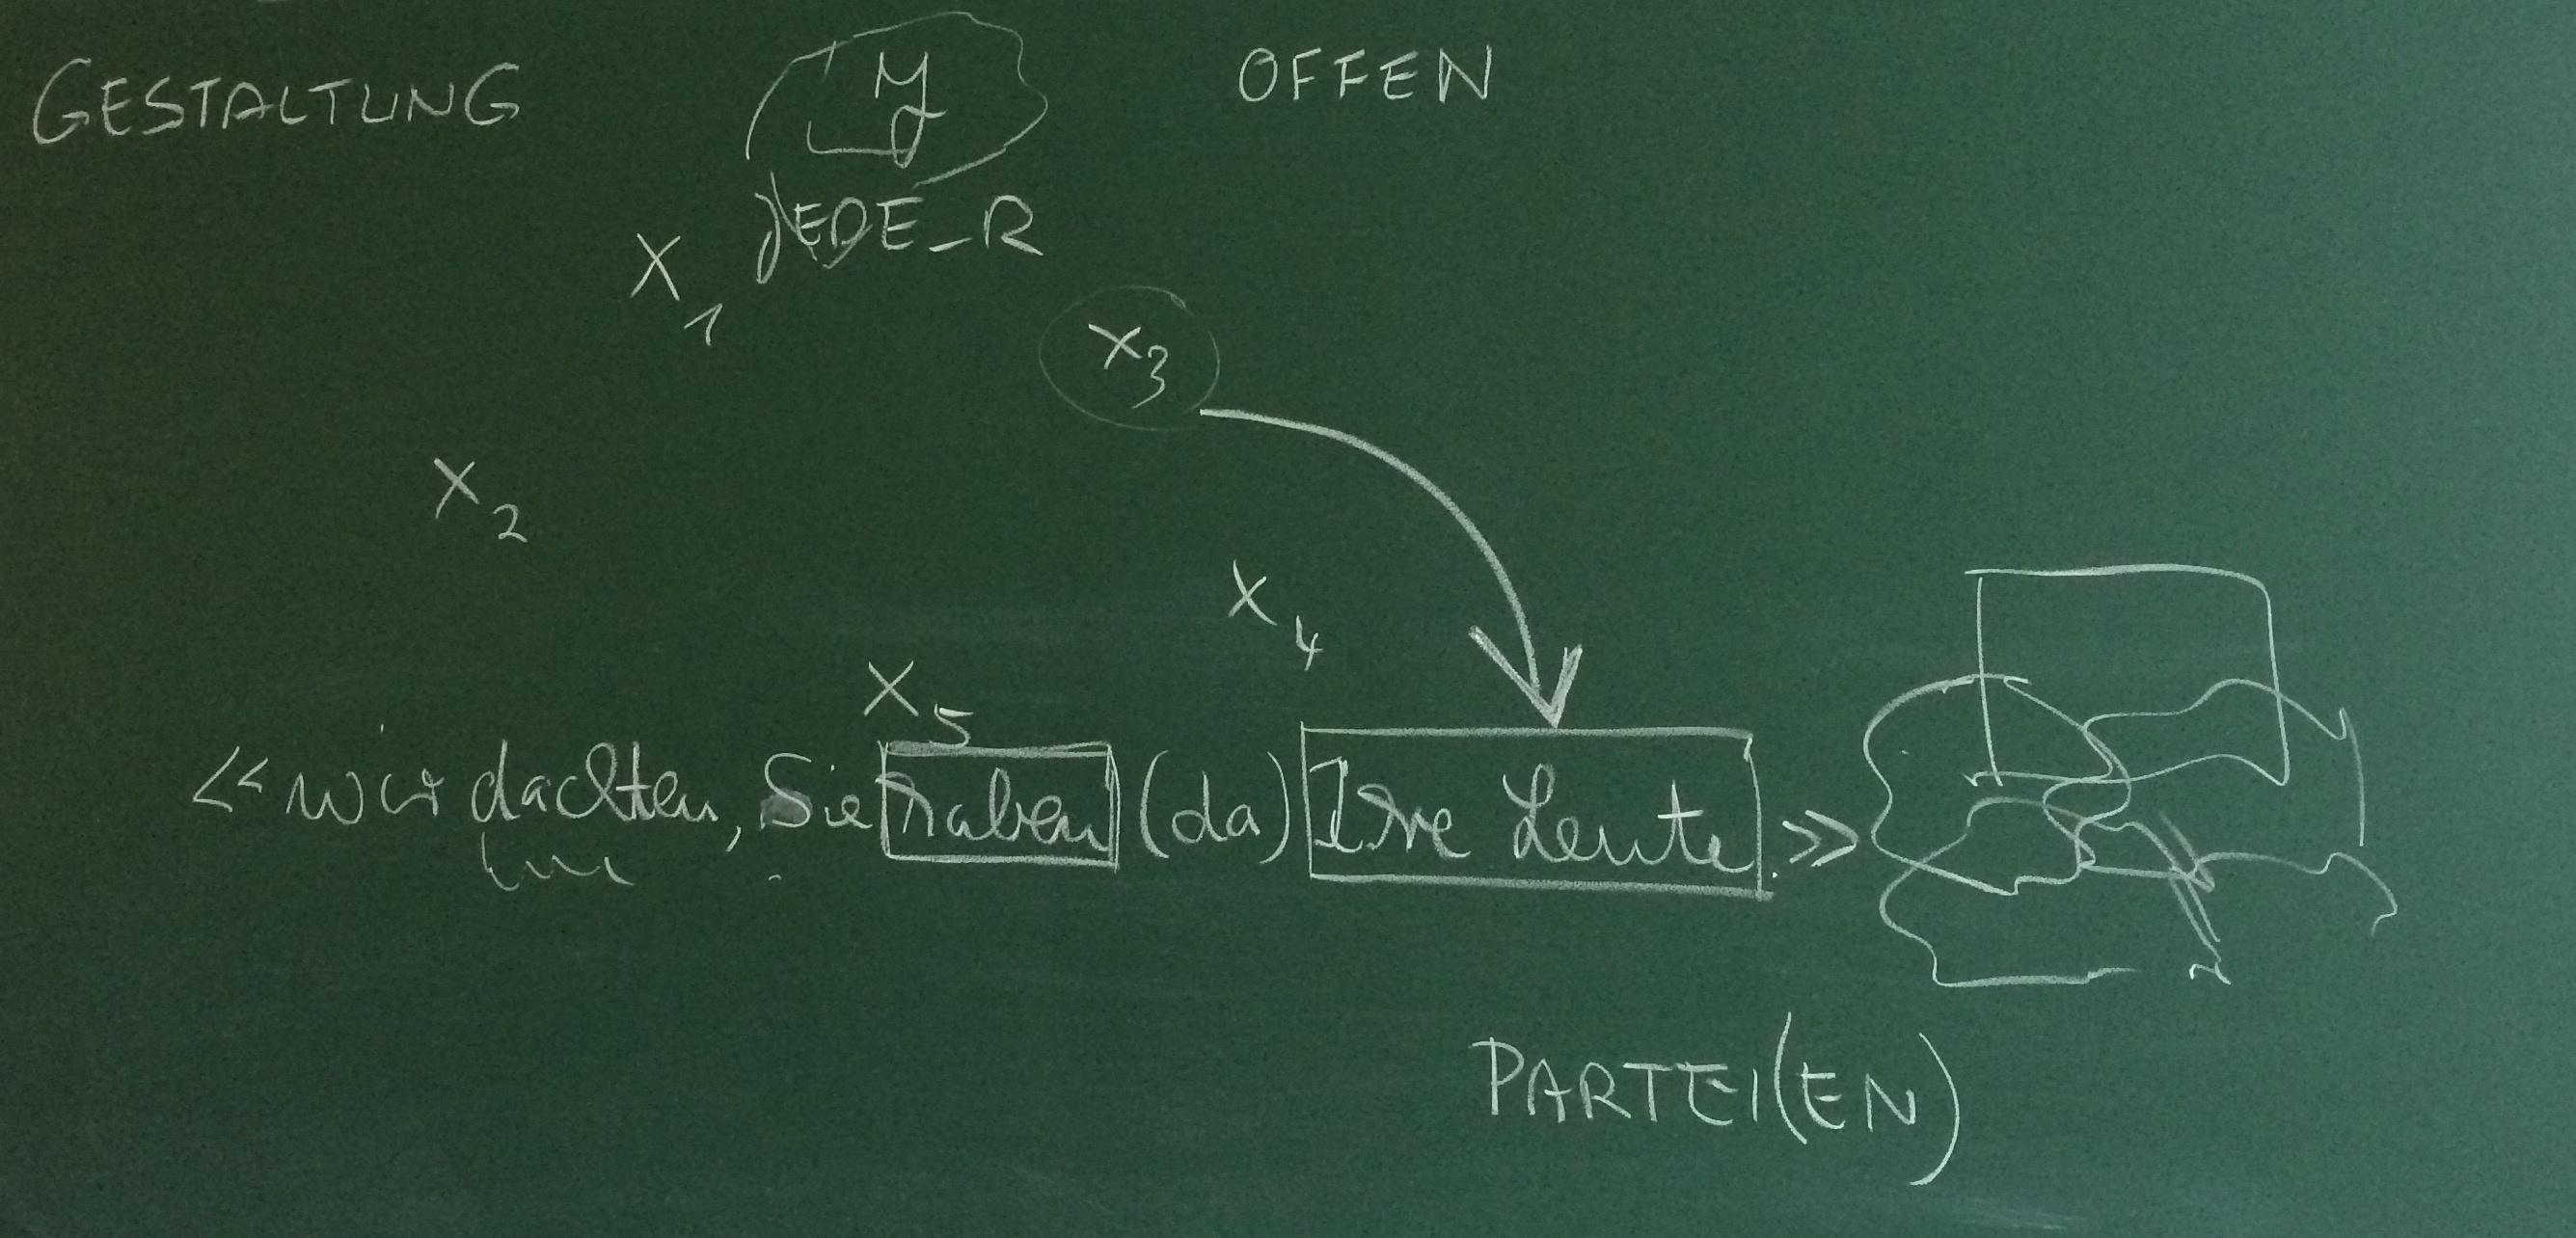 GESTALTUNG
y
OFFEN
JEDE_R
X1
X3
X2
X4
X5
<< wir dachten, Sie haben (da) Ihre Leute. >>
PARTEI(EN)